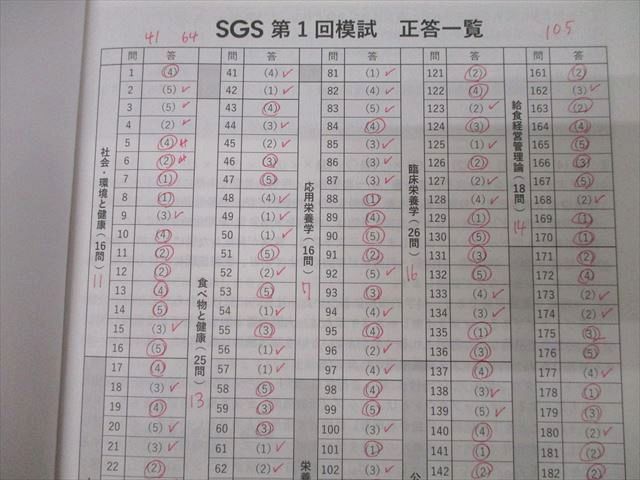 41 64
SGS 第1回模試 正答一覧
105
問 答 問 答 問 答 問 答 問 答
1 (4) 41 (4) 81 (1) 121 (2) 161 (2)
2 (5) 42 (1) 82 (4) 122 (4) 162 (3)
3 (5) 43 (4) 83 (5) 123 (2) 163 (2)
4 (2) 44 (3) 84 (4) 124 (3) 164 (4)
5 (4) 45 (2) 85 (3) 125 (1) 165 (5)
6 (2) 46 (3) 86 (3) 126 (2) 166 (3)
7 (1) 47 (5) 87 (3) 127 (2) 167 (5)
8 (1) 48 (4) 88 (1) 128 (4) 168 (2)
9 (3) 49 (1) 89 (4) 129 (1) 169 (1)
10 (4) 50 (1) 90 (5) 130 (5) 170 (1)
11 (2) 51 (5) 91 (2) 131 (3) 171 (2)
12 (2) 52 (2) 92 (5) 132 (5) 172 (4)
13 (4) 53 (5) 93 (3) 133 (4) 173 (2)
14 (5) 54 (1) 94 (4) 134 (3) 174 (2)
15 (3) 55 (3) 95 (4) 135 (1) 175 (3)
16 (5) 56 (1) 96 (2) 136 (3) 176 (5)
17 (4) 57 (1) 97 (4) 137 (4) 177 (4)
18 (3) 58 (5) 98 (3) 138 (3) 178 (1)
19 (4) 59 (3) 99 (5) 139 (5) 179 (3)
20 (5) 60 (3) 100 (3) 140 (4) 180 (2)
21 (3) 61 (1) 101 (1) 141 (1) 181 (2)
22 (2) 62 (2) 102 (3) 142 (2) 182
社会・環境と健康(16問)
11
食べ物と健康(25問)
13
応用栄養学(16問)
7
臨床栄養学(26問)
16
給食経営管理論(18問)
14
栄養
公